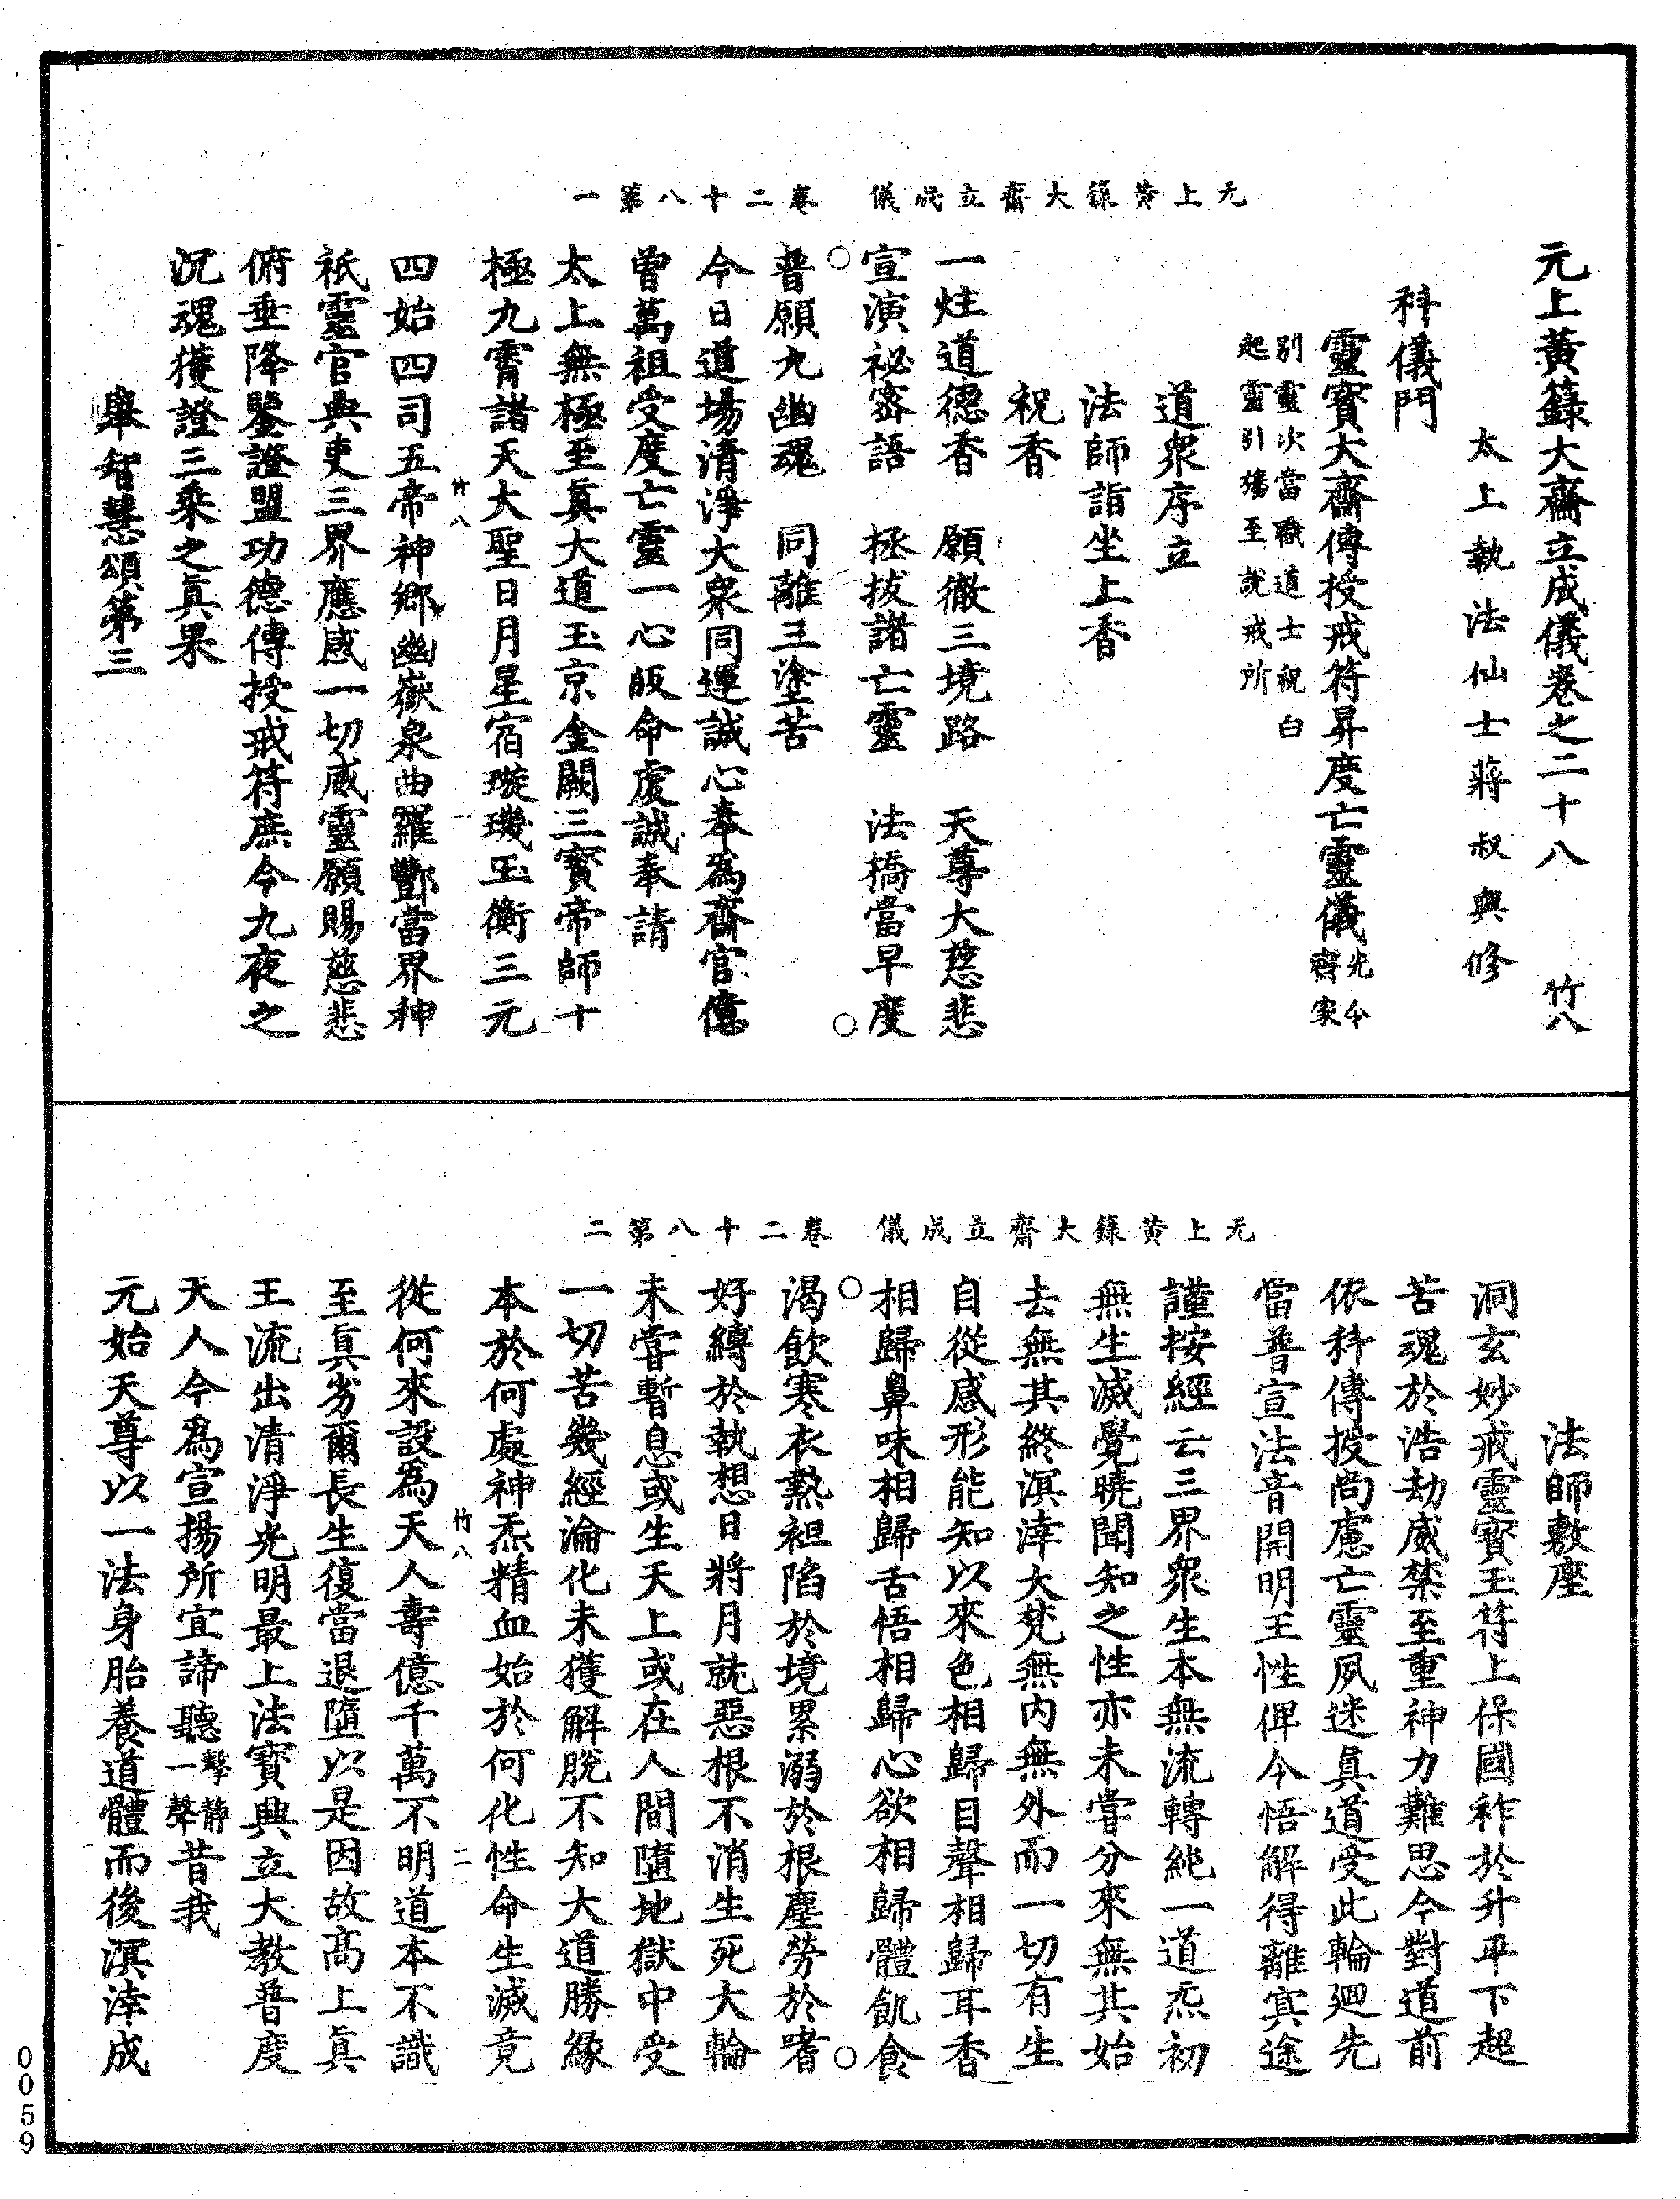 元上黃籙大齋立成儀　卷二十八第一
元上黃籙大齋立成儀卷之二十八　竹八
太上執法仙士蔣叔輿修
科儀門
靈寶大齋傳授戒符昇度亡靈儀先令齋家
別靈次當職道士祝白
起靈引旛至說戒所
道眾序立
法師詣坐上香
祝香
一炷道德香　願徹三境路　天尊大慈悲
宣演祕密語　拯拔諸亡靈　法橋當早度
普願九幽魂　同離三塗苦
今日道場清淨大眾同運誠心奉為齋官億
曾萬祖受度亡靈一心皈命虔誠奉請
太上無極至真大道玉京金闕三寶帝師十
極九霄諸天大聖日月星宿璇璣玉衡三元
竹八　一
四始四司五帝神鄉幽嶽泉曲羅酆當界神
祇靈官典吏三界應感一切威靈願賜慈悲
俯垂降鑒證盟功德傳授戒符庶令九夜之
沉魂獲證三乘之真果
舉智慧頌第三
元上黃籙大齋立成儀　卷二十八第二
法師敷座
洞玄妙戒靈寶玉符上保國祚於升平下超
苦魂於浩劫威禁至重神力難思今對道前
依科傳授尚慮亡靈夙迷真道受此輪廻先
當普宣法音開明王性俾令悟解得離冥途
謹按經云三界眾生本無流轉純一道炁初
無生滅覺曉聞知之性亦未嘗分來無其始
去無其終溟涬大梵無內無外而一切有生
自從感形能知以來色相歸目聲相歸耳香
相歸鼻味相歸舌悟相歸心欲相歸體飢食
渴飲寒衣熱袒陷於境累溺於根塵勞於嗜
好縛於執想日將月就惡根不消生死大輪
未嘗暫息或生天上或在人間墮地獄中受
一切苦幾經淪化未獲解脫不知大道勝緣
本於何處神炁精血始於何化性命生滅竟
竹八　二
從何來設為天人壽億千萬不明道本不識
至真劣爾長生復當退墮以是因故高上真
王流出清淨光明最上法寶典立大教普度
天人今為宣揚所宜諦聽擊靜一聲昔我
元始天尊以一法身胎養道體而後溟涬成
0059